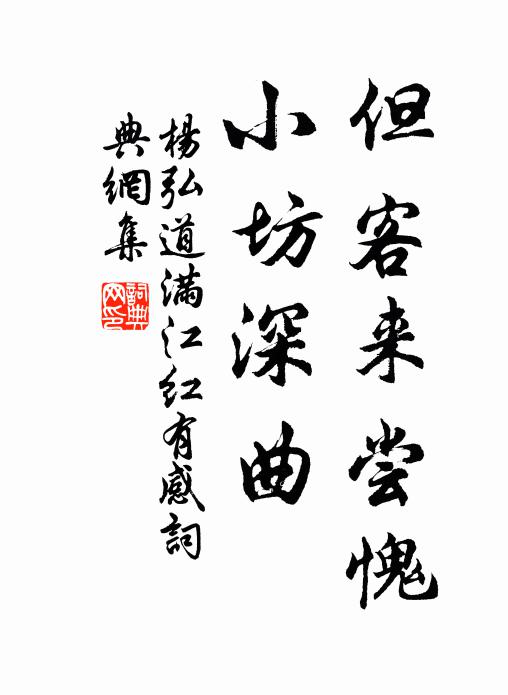 但客来尝愧
小坊深曲
楊弘道满江红有感詞
典網集
詞典
网印